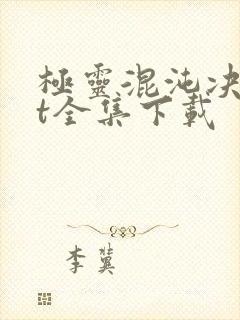 極靈混沌决
t全集下載
李冀